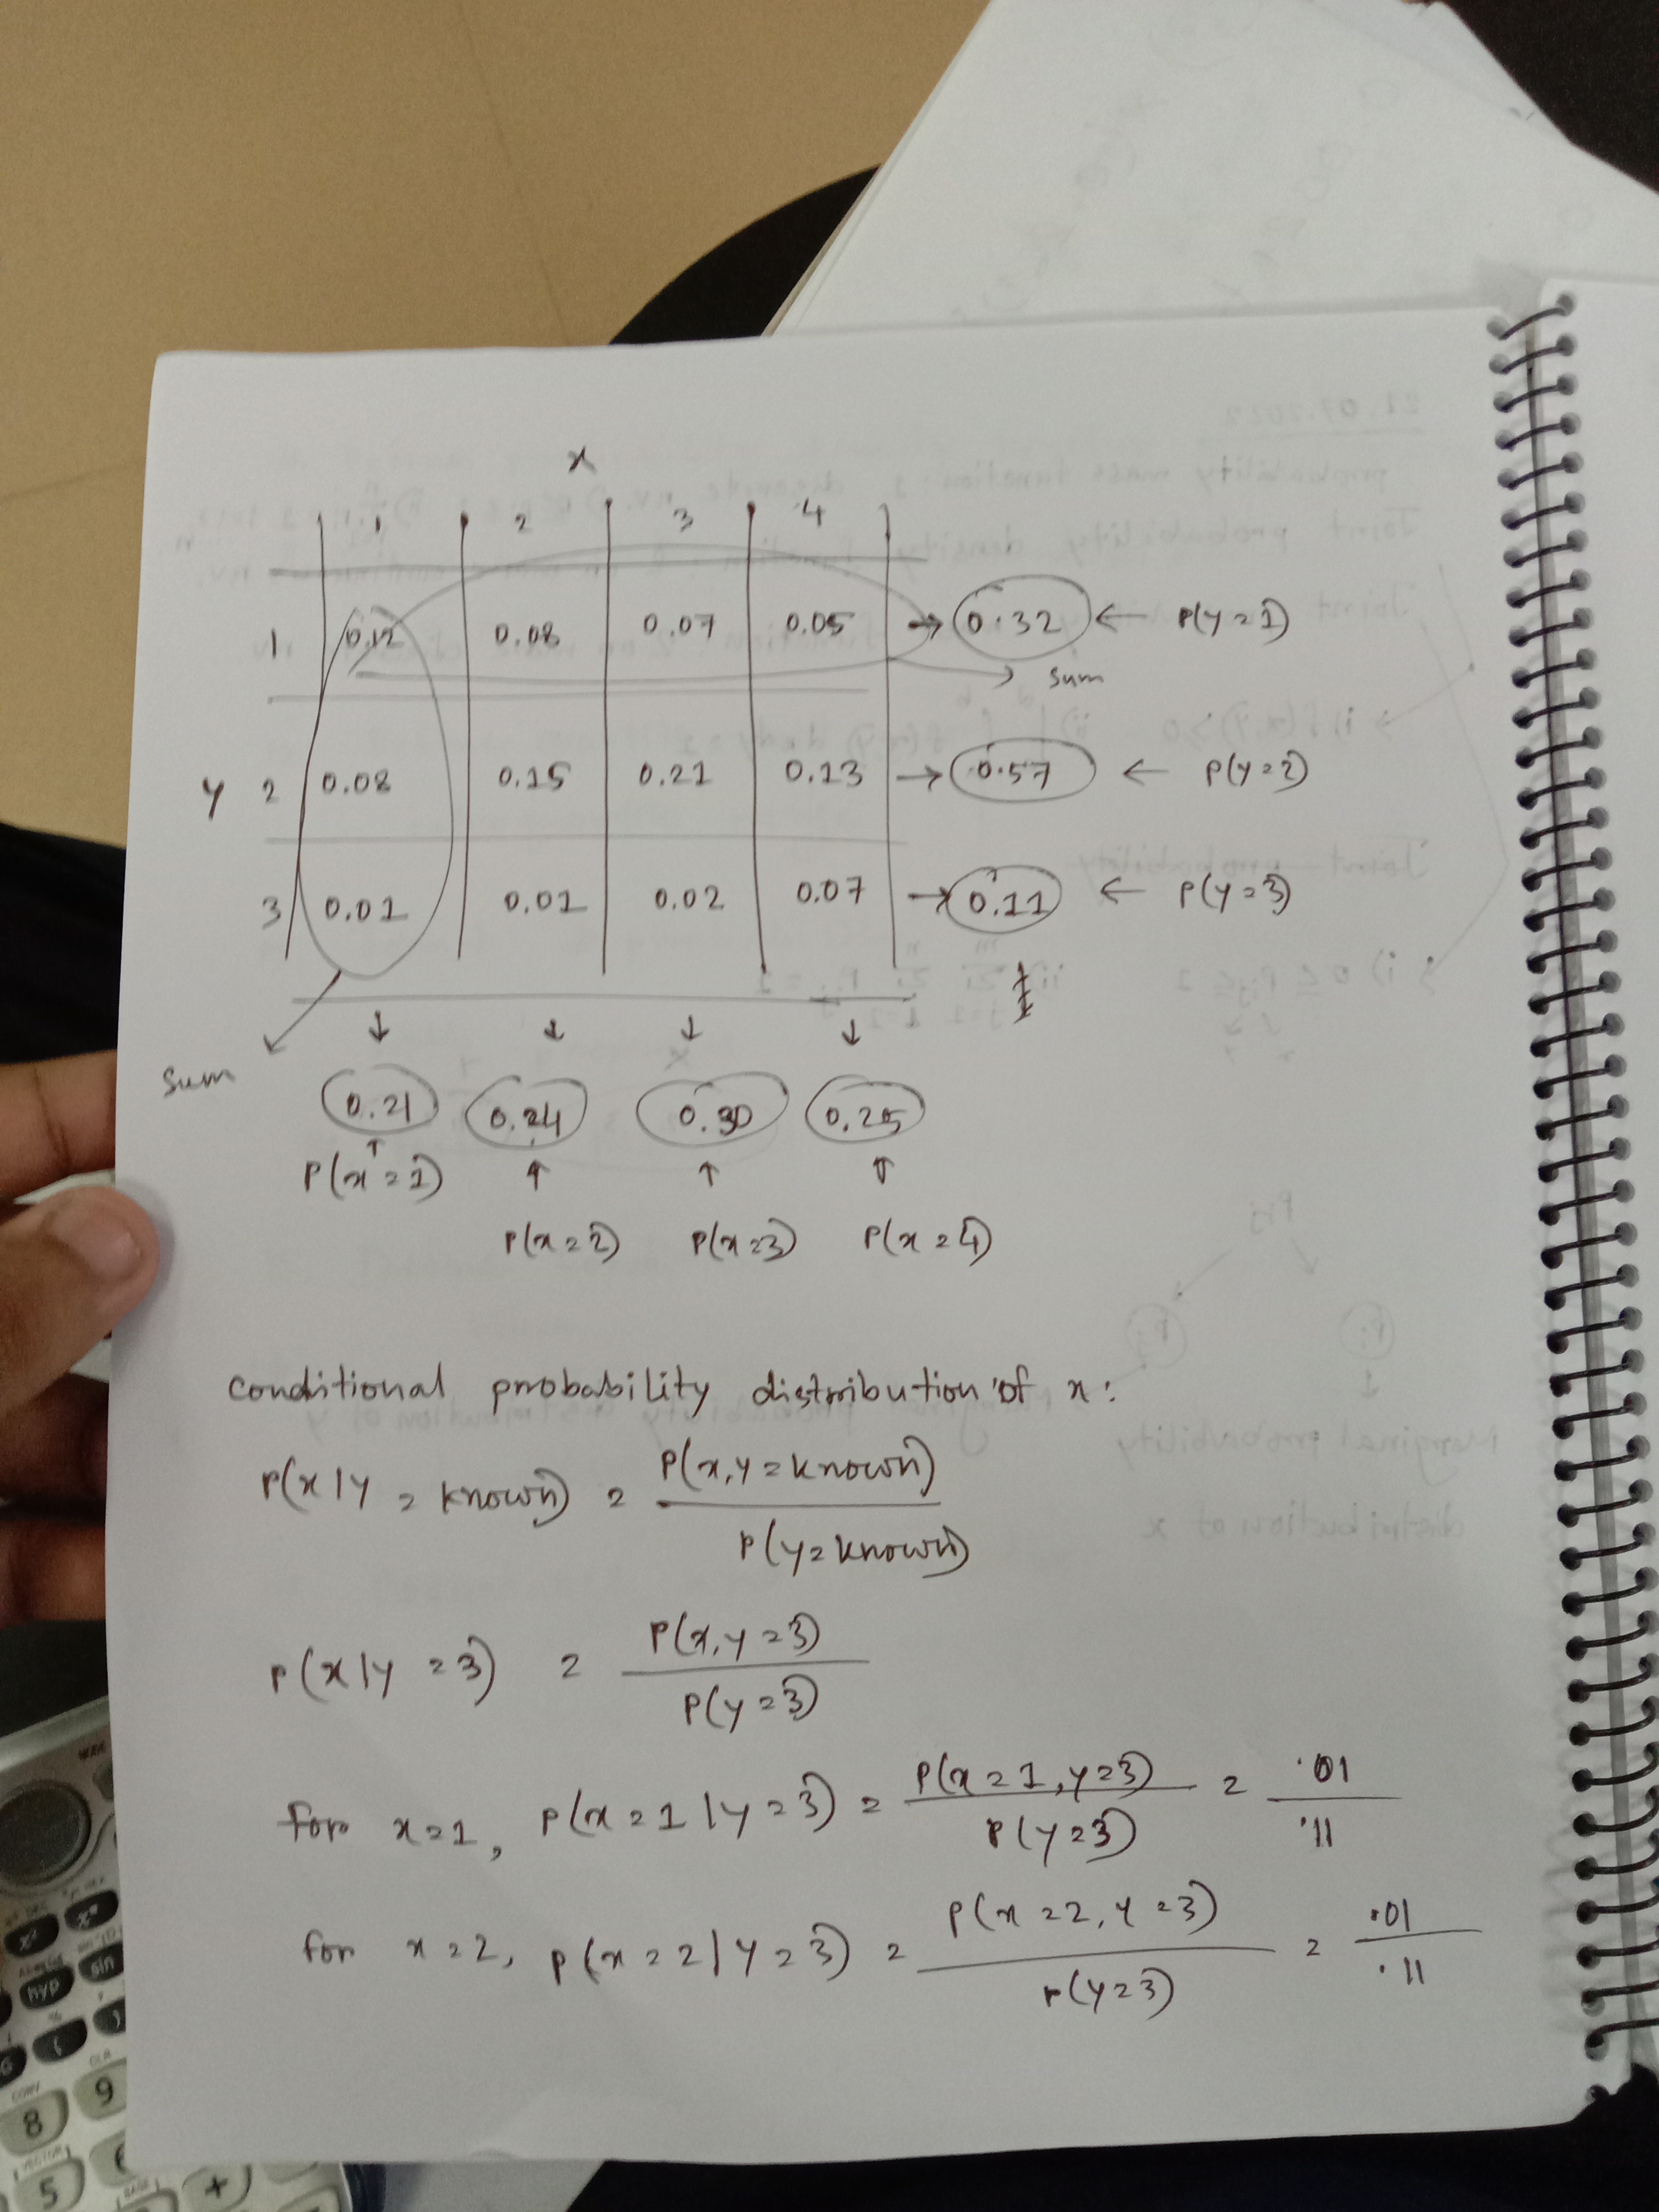 x
1 2 3 4
1 0.12 0.08 0.07 0.05 → 0.32 ← P(y=1)
→ sum
y 2 0.08 0.15 0.21 0.13 → 0.57 ← P(y=2)
3 0.01 0.01 0.02 0.07 → 0.11 ← P(y=3)
↓ ↓ ↓ ↓
sum
0.21 0.24 0.30 0.25
↑ ↑ ↑ ↑
P(x=1)
P(x=2) P(x=3) P(x=4)
conditional probability distribution of x:
P(x|y = known) = P(x,y=known) / P(y=known)
P(x|y=3) = P(x,y=3) / P(y=3)
for x=1, P(x=1|y=3) = P(x=1,y=3) / P(y=3) = .01 / .11
for x=2, P(x=2|y=3) = P(x=2,y=3) / P(y=3) = .01 / .11
hyp
sin
8
9
5
+